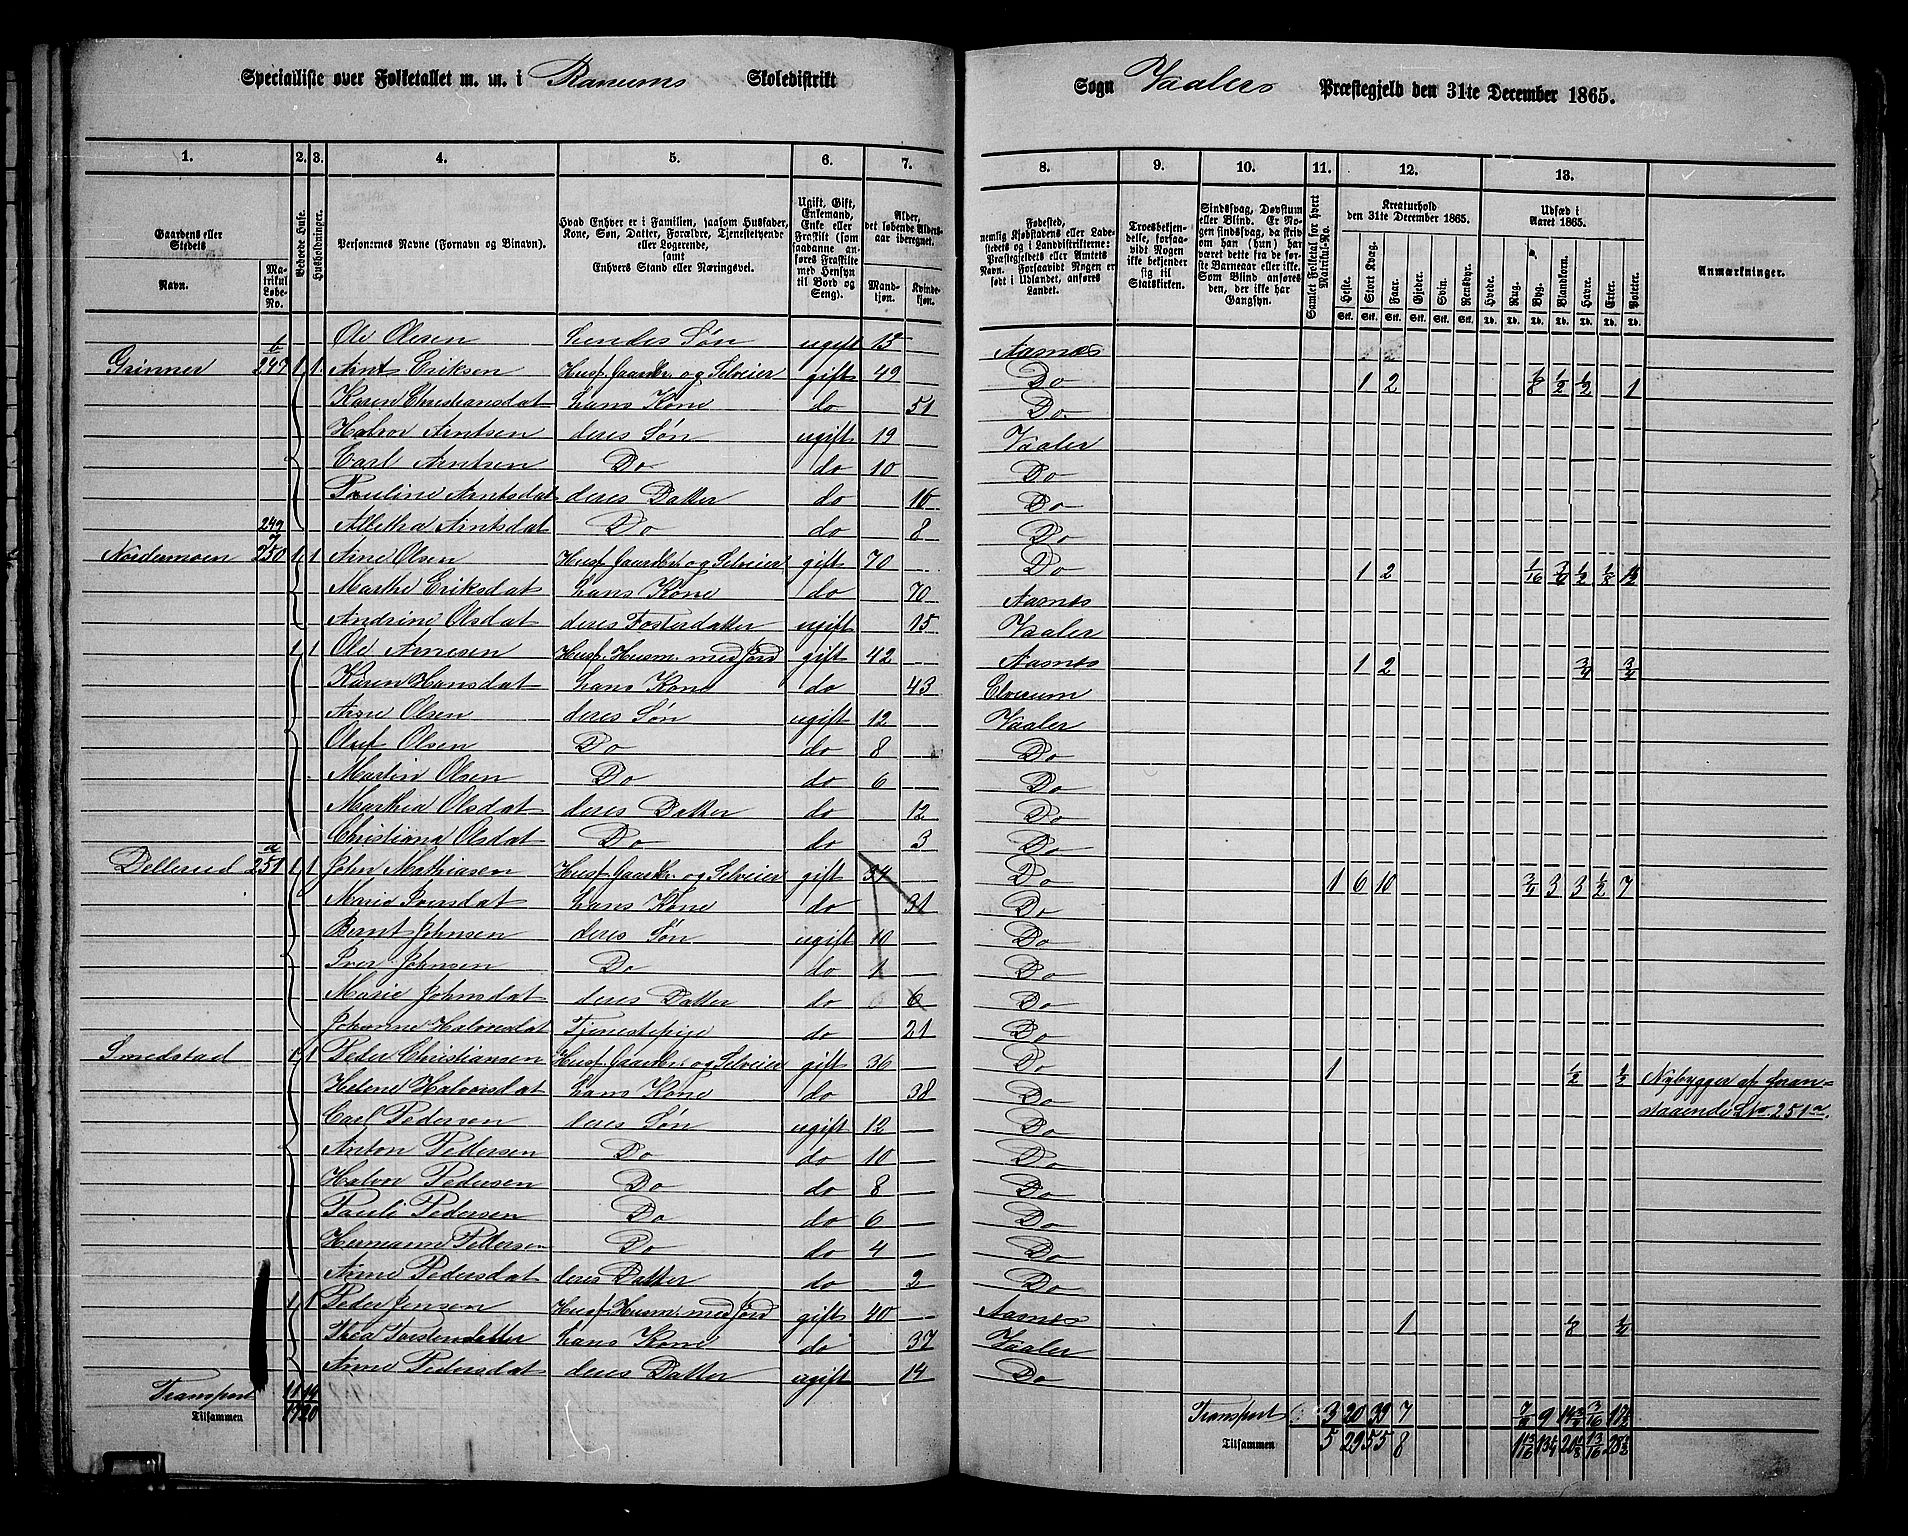 Specialliste over Folketallet m. m. i Ranums Skoledistrikt Sogn Vaalers Præstegjeld den 31te December 1865.
1. 2. 3. 4. 5. 6. 7. 8. 9. 10. 11. 12. 13.
Gaardens eller Stedets
Navn.
Matrikul Løbe-No.
Beboede Huse.
Husholdninger.
Personernes Navne (Fornavn og Binavn).
Hvad Enhver er i Familien, saasom Husfader, Kone, Søn, Datter, Forældre, Tjenestetyende eller Logerende,
samt
Enhvers Stand eller Næringsvei.
Ugift, Gift, Enkemand, Enke eller Fraskilt (som saadanne anføres Fraskilte med Hensyn til Bord og Seng).
Alder, det løbende Aldersaar iberegnet.
Mandkjøn. Kvindekjøn.
Fødested, nemlig Kjøbstadens eller Ladestedets og i Landdistrikterne: Præstegjeldets eller Amtets Navn. Forsaavidt Nogen er født i Udlandet, anføres Landet.
Troesbekjendelse, forsaavidt Nogen ikke bekjender sig til Statskirken.
Sindssvag, Døvstum eller Blind. Er Nogen sindssvag, da skrives om han (hun) har været dette fra de første Barneaar eller ikke. Som Blind anføres den, der ikke har Gangsyn.
Samlet Folketal for hvert Matrikul-No.
Kreaturhold den 31te December 1865.
Heste. Stort Kvæg. Faar. Gjeder. Svin. Rensdyr.
Udsæd i Aaret 1865.
Hvede. Rug. Byg. Blandkorn. Havre. Erter. Poteter.
Anmærkninger.
Ole Olsen hendes Søn ugift 15 Aasnes
Grinner 249 b 1 1 Arnt Eriksen Husf. Gaardbr. og Selveier gift 49 Do 1 2 1/8 1/2 1/2 1
Karen Christiansdat hans Kone do 51 Do
Halvor Arntsen deres Søn ugift 19 Vaaler
Carl Arntsen Do do 10 Do
Pauline Arntsdat deres Datter do 16 Do
Alletha Arntsdat Do do 8 Do
Nordermoen 249 og 250 1 1 Arne Olsen Husf. Gaardbr. og Selveier gift 70 Do 1 2 1/16 3/4 1/2 1/8 1 1/2
Marthe Eriksdat hans Kone do 70 Aasnes
Andrine Olsdat deres Fosterdatter ugift 15 Vaaler
1 1 Ole Arnesen Husf. Husm. med Jord gift 42 Aasnes 1 2 3/4 3/4
Karen Hansdat hans Kone do 43 Elverum
Arne Olsen deres Søn ugift 12 Vaaler
Oluf Olsen Do do 8 Do
Martin Olsen Do do 6 Do
Marthea Olsdat deres Datter do 12 Do
Christiana Olsdat Do do 3 Do
Dellerud 251 a 1 1 John Mathiasen Husf. Gaardbr. og Selveier gift 34 Do 1 6 10 3/4 3 3 1/2 7
Marie Iversdat hans Kone do 31 Do
Bernt Johnsen deres Søn ugift 10 Do
Iver Johnsen Do do 1 Do
Marie Johnsdat deres Datter do 6 Do
Johanne Halvorsdat Tjenestepige do 21 Do
Smedstad 1 1 Peder Christiansen Husf. Gaardbr. og Selveier gift 36 Do 1 1/2 1/2 Nybygger af foran-
Helene Halvorsdat hans Kone do 38 Do staaende L No 251 a.
Carl Pedersen deres Søn ugift 12 Do
Anton Pedersen Do do 10 Do
Halvor Pedersen Do do 8 Do
Pauli Pedersen Do do 6 Do
Hermann Pedersen Do do 4 Do
Anne Pedersdat deres Datter do 2 Do
1 1 Peder Jensen Husf. Husm. med Jord gift 40 Aasnes 1 1/8 3/4
Thea Torstensdatter hans Kone do 37 Vaaler
Anne Pedersdat deres Datter ugift 14 Do
Transport 11 14 Transport 3 20 39 7 7/8 9 3/16
Tilsammen 17 20 Tilsammen 5 29 55 8